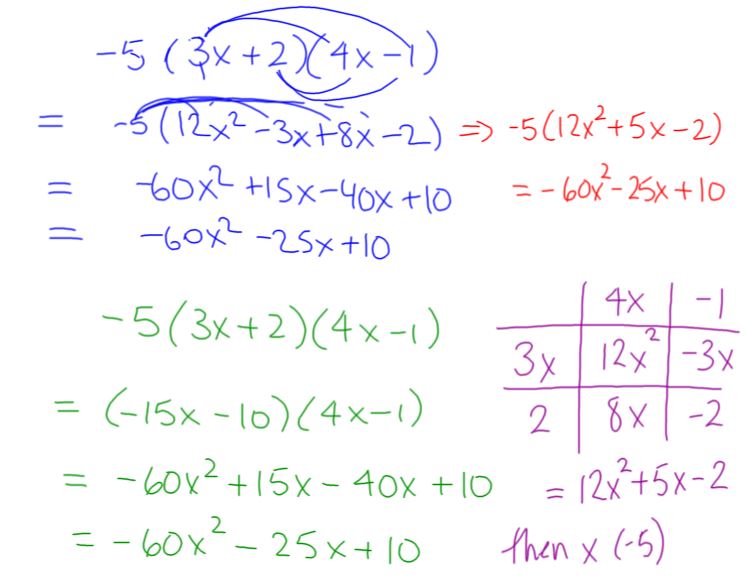 -5(3x+2)(4x-1)
= -5(12x²-3x+8x-2) => -5(12x²+5x-2)
= -60x²+15x-40x+10
= -60x²-25x+10
= -60x²-25x+10
-5(3x+2)(4x-1)
= (-15x-10)(4x-1)
= -60x²+15x-40x+10
= -60x²-25x+10
4x -1
3x 12x² -3x
2 8x -2
= 12x²+5x-2
then x (-5)